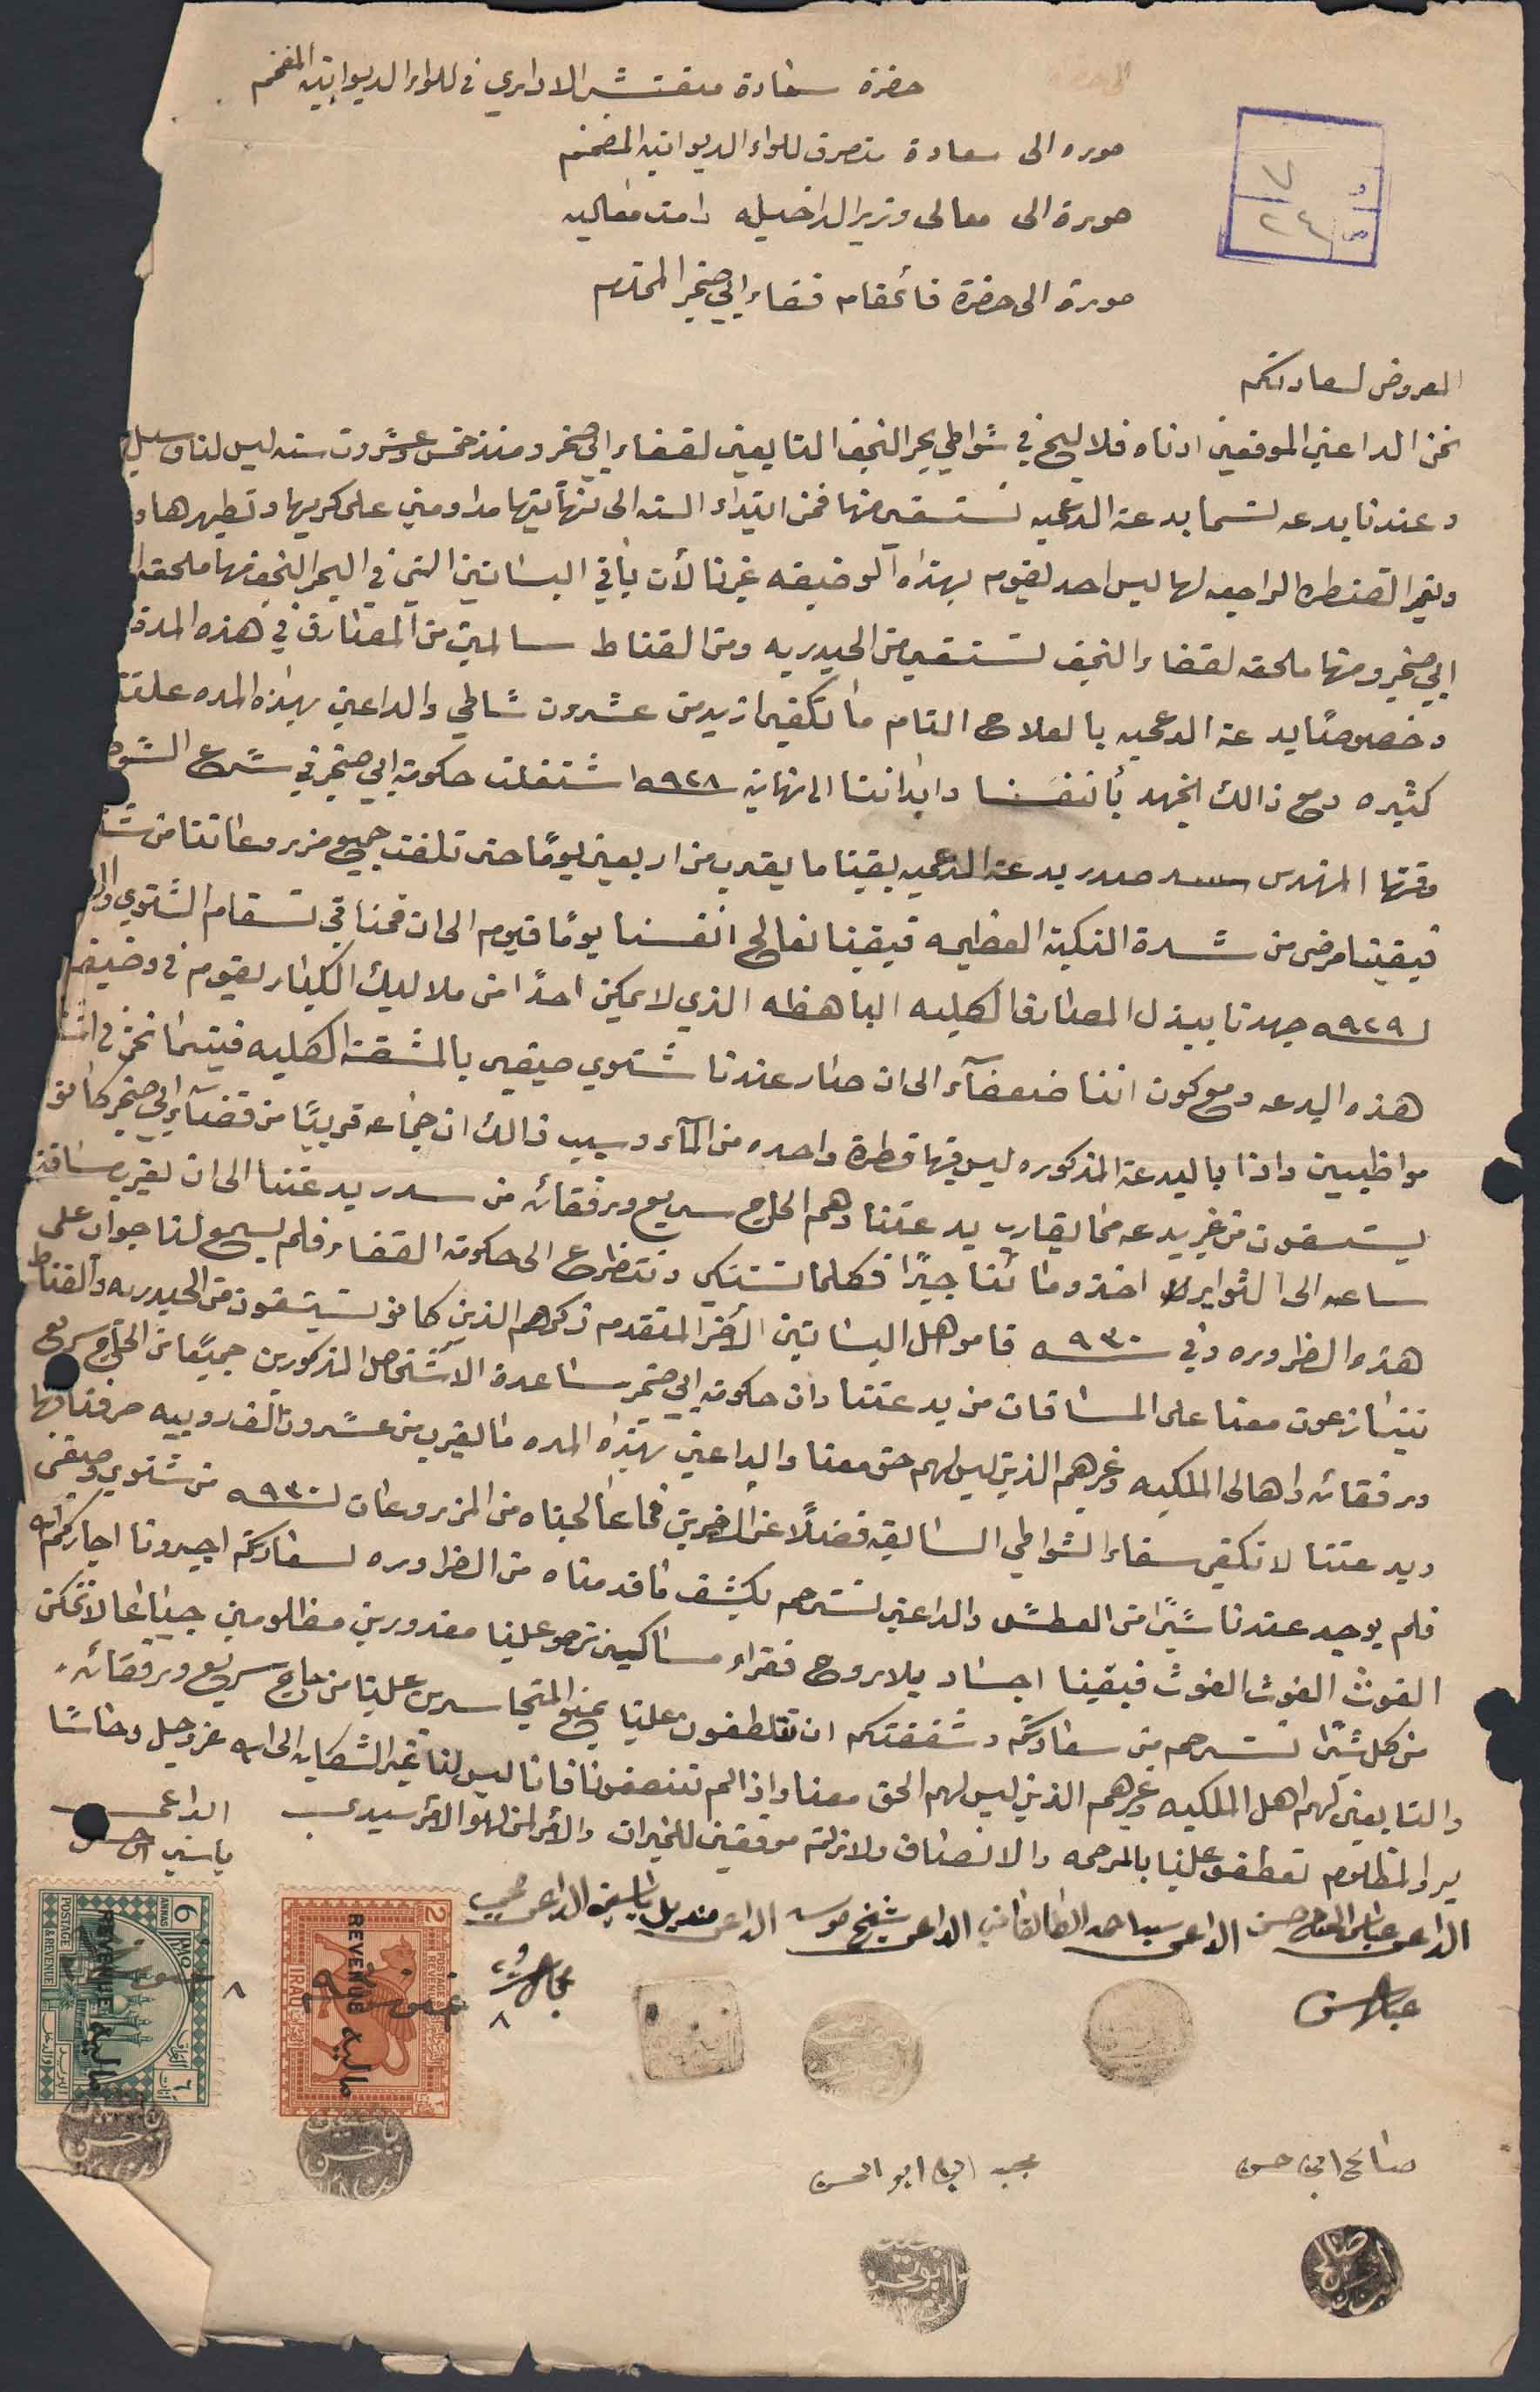 حضرة سعادة مفتش الاداري في للواء الديوانيه المفخم
صوره الى سعادة متصرف للواء الديوانيه المفخم
صورة الى معالي وزير الداخيله دامت معاليه
صورة الى حضرة قائمقام قضاء ابي صخير المحترم
و ٧
ص ٢٤
المعروض لسعادتكم
نحن الداعين الموقعين ادناه فلاليح في شواطي بحر النجف التابعين لقضاء ابي صخر ومنذ خمس وعشرون سنه ليس لنا وسيل
وعندنا بدعه لسما بدعة الدعميه نستقي منها فمن ابتداء السنه الى نهأيتها مداومين على كريها وتطهيرها و
القنطره الراجعه لها ليس احد يقوم بهذاه الوضيفه غيرنا لأن باقي البساتين التي في البحر النجف منها ملحقه
ابي صخير ومنها ملحقه لقضاء النجف تستقي من الحيدريه ومن القناط سالمين من المصارف في هذه المدة
وخصوصًا بدعة الدعميه بالعلاج التام ما تكفي ازيد من عشرون شاطي والداعين بهذه المده علقة
كثيره ومع ذالك نجهد بأنفسنا وابداننا الى نهاية ٩٢٨ اشتغلت حكومة ابي صخر في شرع الشوا
وقتها المهندس سد صدر بدعة الدعميه بقينا ما يقدر من اربعين يومًا حتى تلفت جميع مزروعاتنا من
فبقينا مرضى من شدة النكبة العظيمه فبقينا نعالج انفسنا يومًا فيوم الى ان قمنا في تسقام الشتوي
لسنه ٩٢٩ جهدنا ببذل المصارف الكليه الباهظه الذي لا يمكن احدًا من ملاليك الكبار يقوم في وضيفة
هذه البدعه ومع كون اننا ضعفآء الى ان صار عندنا شتوي صيفي بالمشقة الكليه فبينما نحن في اشد
مواظبين واذا بالبدعة المذكوره ليس فيها قطرة واحده من المآء وسبب ذالك ان جماعه قريبًا من قضآء ابي صخر كانو
يستسقون من غير بدعه مما يقارب بدعتنا وهم الحاج سريع ورفقائه من سدر بدعتنا الى ان يقرب مسافة
ساعه الى الثواير اخذو مائنا جبرًا فكلما نشتكي ونتظرع الى حكومة القضاء فلم يسمع لنا جواب على
هذه الظروره وفي سنه ٩٣٠ قامو اهل البساتين الأخر المتقدم ذكرهم الذين كانو تستسقون من الحيدريه والقناط
يتنازعون معنا على المساقات من بدعتنا وان حكومة ابي صخر ساعدة الأشخاص المذكورين جميعًا من الحاج سريع
ورفقائه واهالي الملكيه وغيرهم الذين ليس لهم حق معنا والداعين بهذاه المده ما يقرب من عشرون الف روبيه صرفناها
وبدعتنا لا تكفي سقاء الشواطي السابقه فضلًا عن الخيرين فما عالجناه من المزروعات لسنه ٩٣٠ من شتوي وصيفي
فلم يوجد عندنا شيئًا من العطش والداعين نسترحم بكشف ما قدمناه من الظراوره لسعادتكم اجيرونا اجاركم الله
الغوث الغوث الغوث فبقينا اجساد بلا روح فقراء مساكين ترحمو علينا مغدورين مظلومين جياعا لا نتمكن
من كل شيئًا نسترحم من سعادتكم وشفقتكم ان تتلطفون علينا بمنع المتجاسرين علينا من حاج سريع ورفقائه
والتابعين لهم اهل الملكيه وغيرهم الذين ليس لهم الحق معنا واذا لم تنصفونا فانا ليس لنا غير الشكايه الى الله عز وجل وحاشا
يرد المظلوم تعطفو علينا بالمرحمه والانصاف ولا زلتم موفقين للخيرات والأمر لمن لهو الأمر سيدي
الداعي
ياسين
الداعي عباس الحاج حسن الداعي سيد احمد الطالقاني الداعي شيخ موسى الداعي منديل ياسين الداعي
عباس
2 POSTAGE & REVENUE IRAQ
REVENUE مالية
6 ANNAS IRAQ POSTAGE & REVENUE
REVENUE مالية
٨
٨
صالح ابن حسن
ابن ابو الحسن